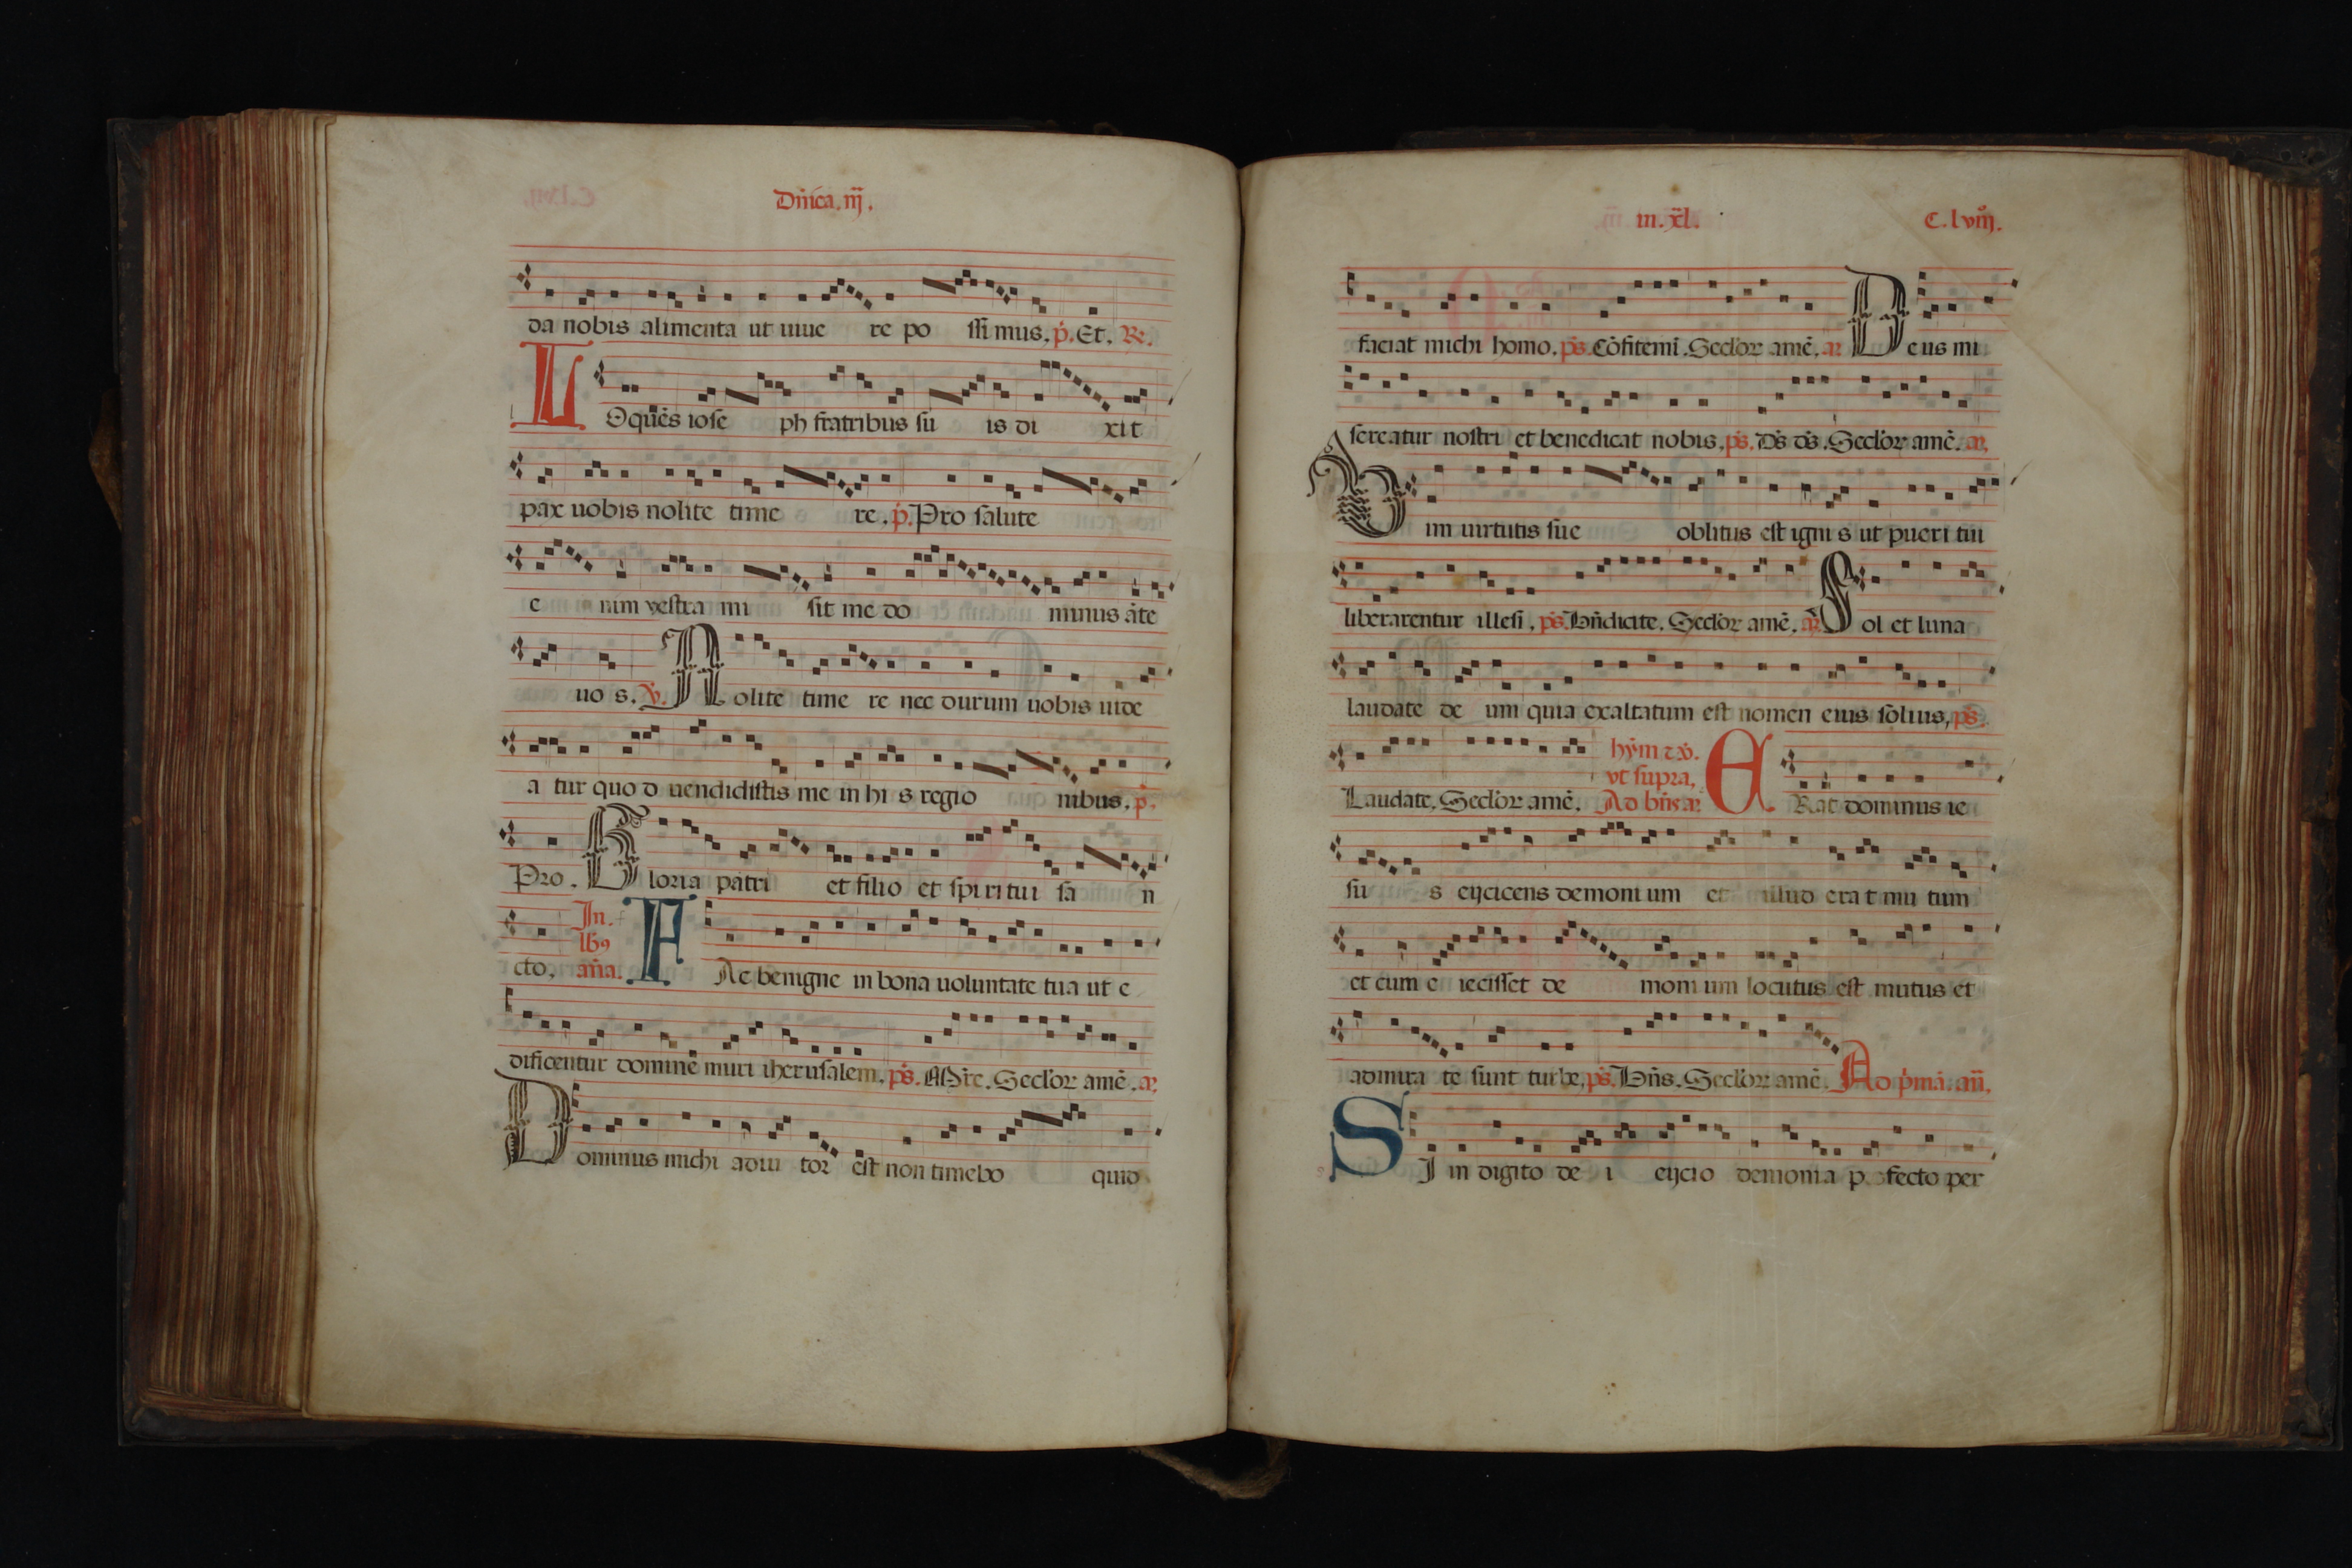 Dñica. iij.
da nobis alimenta ut uiue re po ssi mus. p. Et. R.
L Oquẽs iose ph fratribus su is di xit
pax uobis nolite time re. p. Pro salute
e nim vestra mi sit me do minus ãte
uo s. V. N olite time re nec durum uobis uide
a tur quo d uendidistis me in hi s regio nibus. p.
Pro. G loria patri et filio et spiritui sa n
cto. In. lb9 aña. F Ac benigne in bona uoluntate tua ut e
dificentur domine muri iherusalem. ps. Mr̃e. Seclor amẽ. a.
D ominus michi adiu tor est non timebo quid
in. xl. C. lviij.
faciat michi homo. ps. Cõfitemi. Seclor amẽ. a. D eus mi
sereatur nostri et benedicat nobis. ps. Ds ds. Seclor amẽ. a.
V im uirtutis sue oblitus est igni s ut pueri tui
liberarentur illesi. ps. Bñdicite. Seclor amẽ. a. S ol et luna
laudate de um quia exaltatum est nomen eius solius. ps.
Laudate. Seclor amẽ. hỹm τ v. vt supra. Ad bñs a. E Rat dominus ie
su s eijciens demoni um et illud era t mu tum
et cum e iecisset de moni um locutus est mutus et
admira te sunt turbe. ps. Bñs. Seclor amẽ. Ad pmã. añ.
S I in digito de i eijcio demonia p fecto per